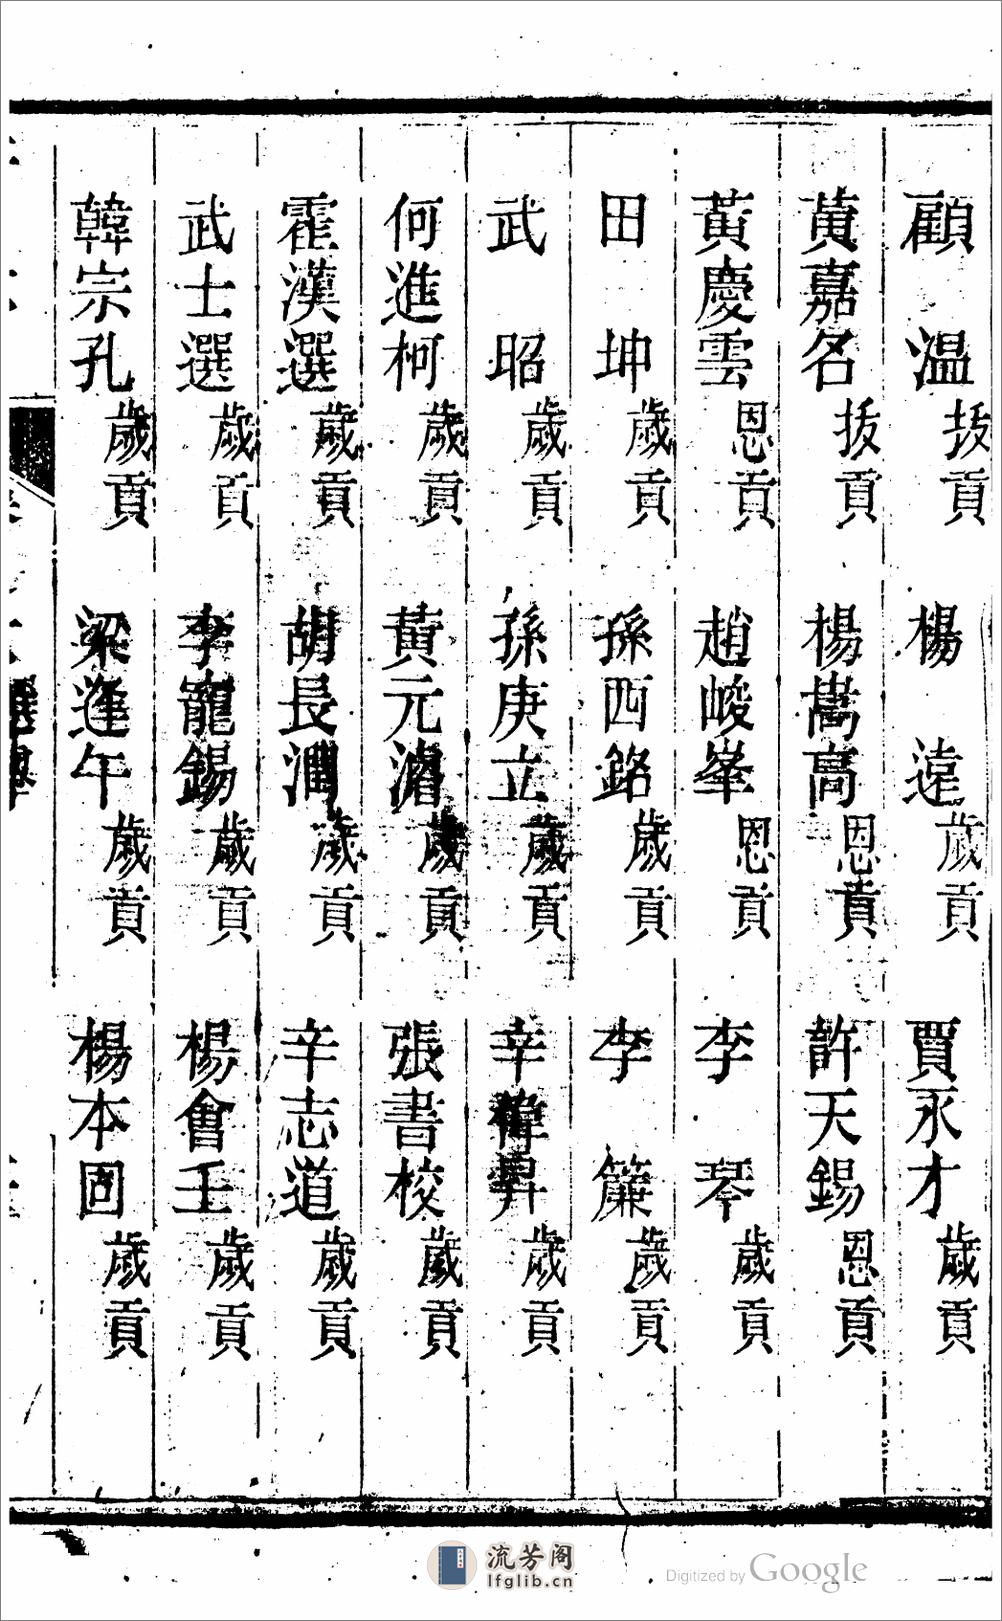 顧溫拔貢 楊遠歲貢 賈永才歲貢
黃嘉名拔貢 楊嵩高恩貢 許天錫恩貢
黃慶雲恩貢 趙峻峯恩貢 李琴歲貢
田坤歲貢 孫西銘歲貢 李簾歲貢
武昭歲貢 孫庚立歲貢 辛歲貢
何進柯歲貢 黃元濬歲貢 張書校歲貢
霍漢選歲貢 胡長潤歲貢 辛志道歲貢
武士選歲貢 李寵錫歲貢 楊會壬歲貢
韓宗孔歲貢 梁逢午歲貢 楊本固歲貢
選舉
流芳阁
lfglib.cn
Digitized by Google